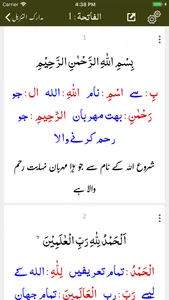 4:38 PM
الفاتحة: 1
مدارک التنزیل
1
بِسْمِ اللهِ الرَّحْمٰنِ الرَّحِيْمِ
بِ: سے اسْمِ: نام اللهِ: الله ال: جو
رَحْمٰنِ: بہت مہربان الرَّحِيْمِ: جو
رحم کرنے والا
شروع اللہ کے نام سے جو بڑا مہربان نہایت رحم
والا ہے
2
اَلْحَمْدُ لِلّٰهِ رَبِّ الْعٰلَمِيْنَ
اَلْحَمْدُ: تمام تعریفیں لِلّٰهِ: اللہ کے لیے
رَبِّ: رب الْعَالَمِينَ: تمام جہان